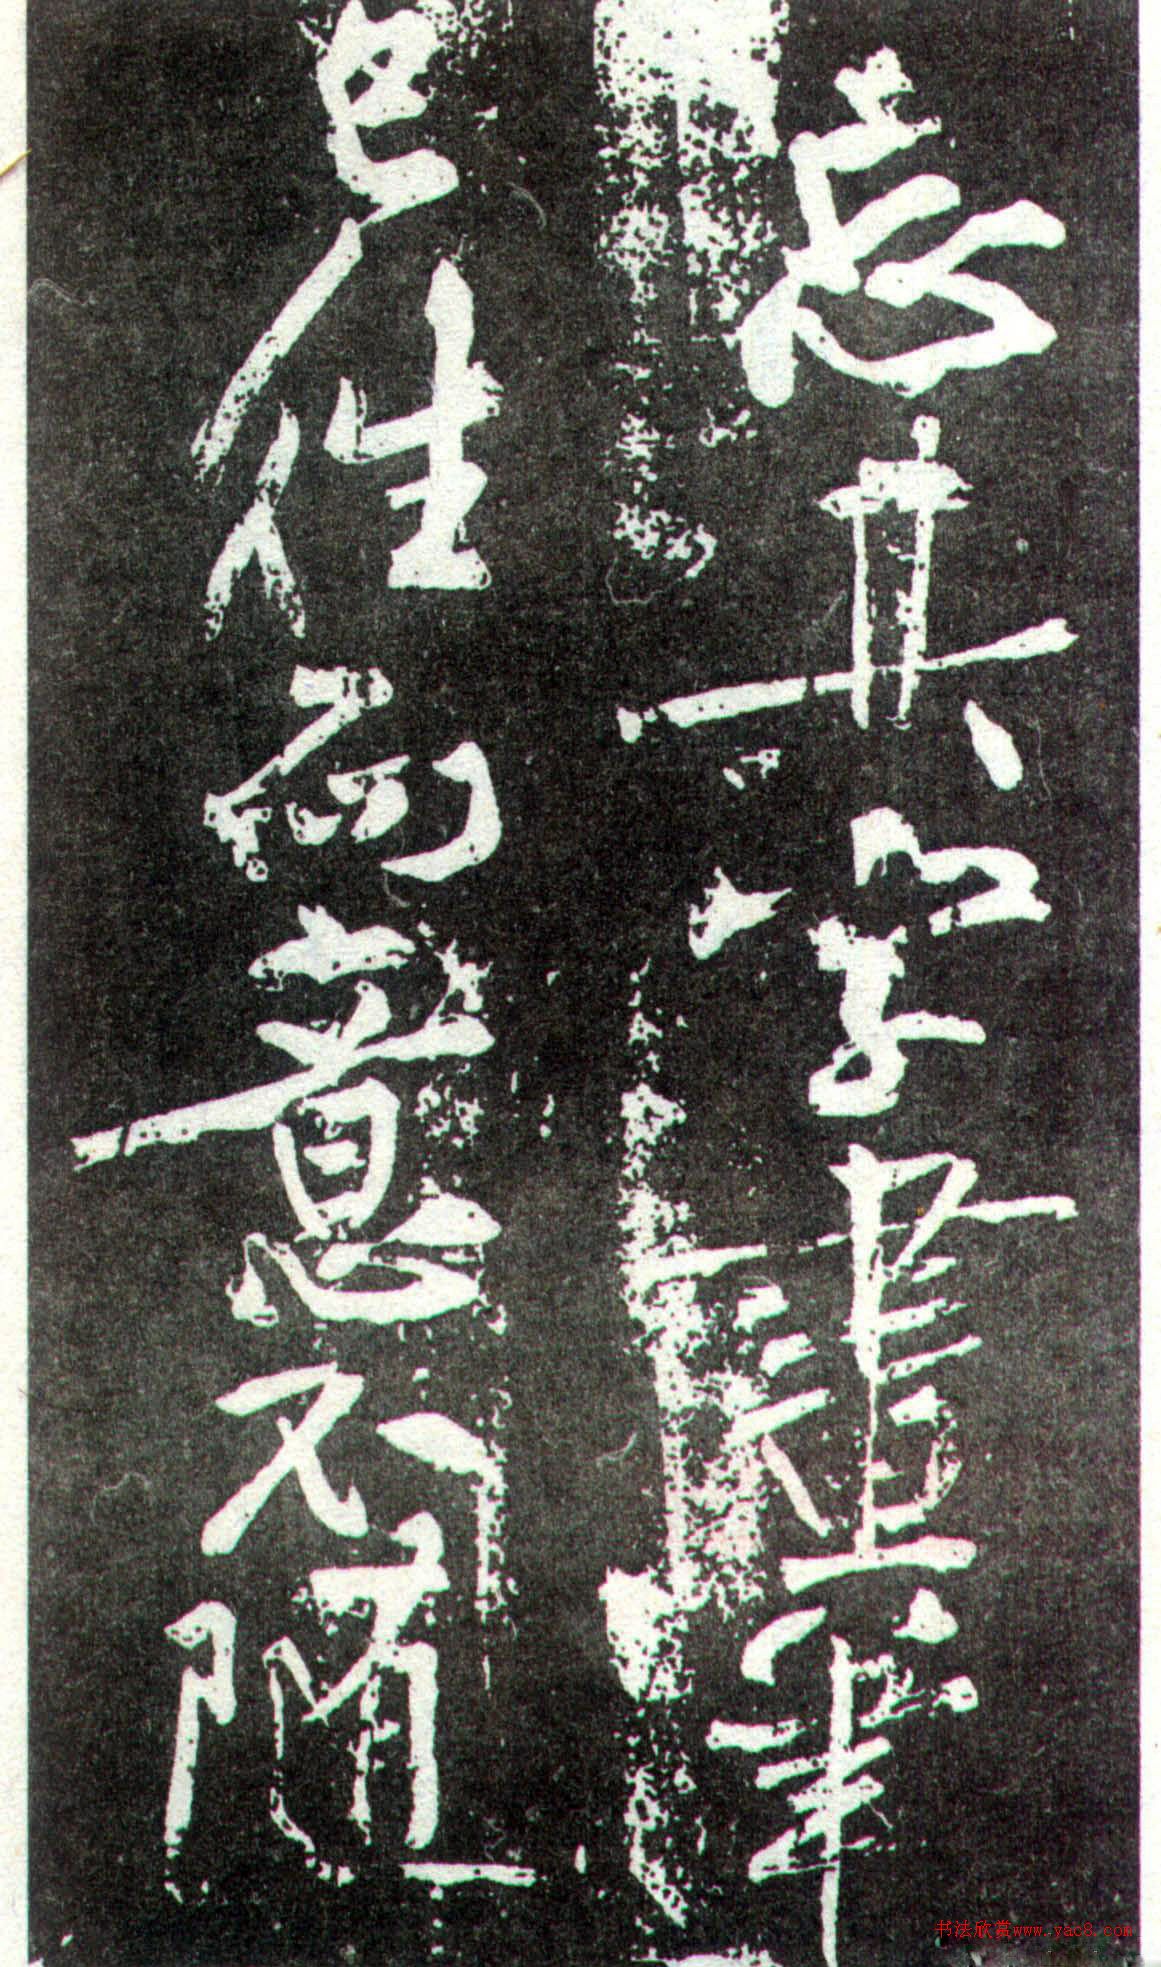 忘其字筆
已往而意不随
书法欣赏www.yac8.com